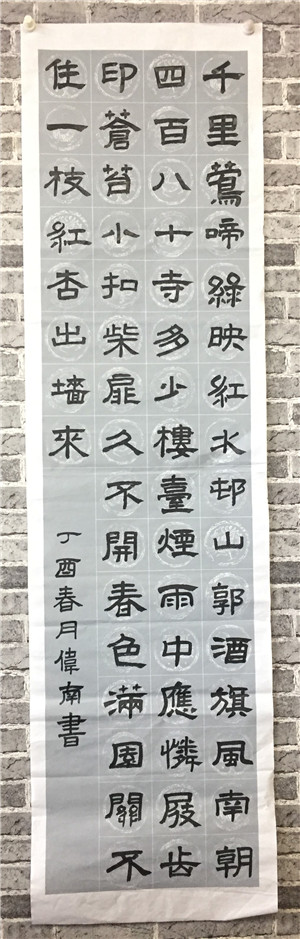 千里鶯啼綠映紅水邨山郭酒旗風南朝
四百八十寺多少樓臺煙雨中應憐屐齿
印蒼苔小扣柴扉久不開春色滿園關不
住一枝紅杏出墻來
丁酉春月偉南書